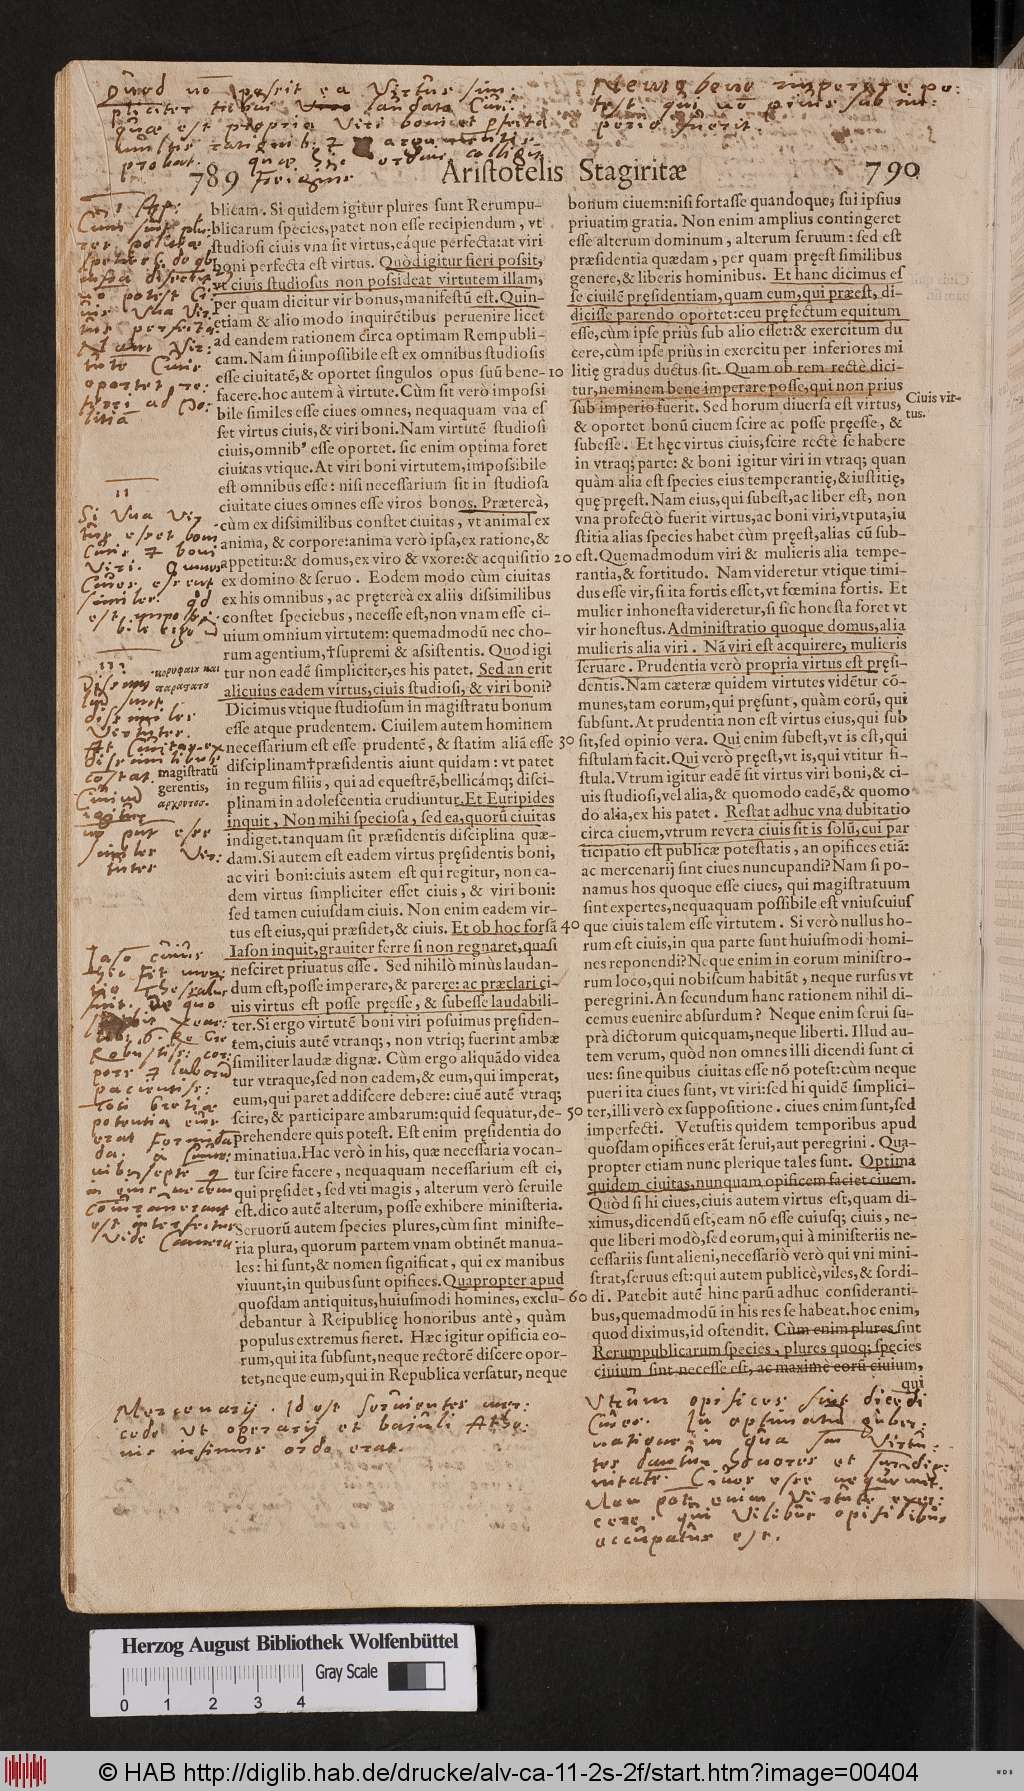 Nemo bene imperare po:
test. qui nō prius sub im:
perio fuerit.
789 Aristotelis Stagiritæ 790
blicam. Si quidem igitur plures sunt Rerumpu-
blicarum species, patet non esse recipiendum, vt
studiosi ciuis vna sit virtus, eáque perfecta: at viri
boni perfecta est virtus. Quòd igitur fieri possit,
vt ciuis studiosus non possideat virtutem illam,
per quam dicitur vir bonus, manifestū est. Quin-
etiam & alio modo inquirētibus peruenire licet
ad eandem rationem circa optimam Rempubli-
cam. Nam si impossibile est ex omnibus studiosis
esse ciuitatē, & oportet singulos opus suū bene-
facere. hoc autem à virtute. Cùm sit verò impossi
bile similes esse ciues omnes, nequaquam vna es
set virtus ciuis, & viri boni. Nam virtutē studiosi
ciuis, omnib' esse oportet. sic enim optima foret
ciuitas vtique. At viri boni virtutem, impossibile
est omnibus esse: nisi necessarium sit in studiosa
ciuitate ciues omnes esse viros bonos. Prætereà,
cùm ex dissimilibus constet ciuitas, vt animal ex
anima, & corpore: anima verò ipsa, ex ratione, &
appetitu: & domus, ex viro & vxore: & acquisitio
ex domino & seruo. Eodem modo cùm ciuitas
ex his omnibus, ac prętereà ex aliis dissimilibus
constet speciebus, necesse est, non vnam esse ci-
uium omnium virtutem: quemadmodū nec cho-
rum agentium, †supremi & assistentis. Quod igi
tur non eadē simpliciter, ex his patet. Sed an erit
alicuius eadem virtus, ciuis studiosi, & viri boni?
Dicimus vtique studiosum in magistratu bonum
esse atque prudentem. Ciuilem autem hominem
necessarium est esse prudentē, & statim aliā esse
disciplinam†præsidentis aiunt quidam: vt patet
in regum filiis, qui ad equestrē, bellicámq; disci-
plinam in adolescentia erudiuntur. Et Euripides
inquit, Non mihi speciosa, sed ea, quorū ciuitas
indiget. tanquam sit præsidentis disciplina quæ-
dam. Si autem est eadem virtus pręsidentis boni,
ac viri boni: ciuis autem est qui regitur, non ea-
dem virtus simpliciter esset ciuis, & viri boni:
sed tamen cuiusdam ciuis. Non enim eadem vir-
tus est eius, qui præsidet, & ciuis. Et ob hoc forsā
Iason inquit, grauiter ferre si non regnaret, quasi
nesciret priuatus esse. Sed nihilò minùs laudan-
dum est, posse imperare, & parere: ac præclari ci-
uis virtus est posse pręesse, & subesse laudabili-
ter. Si ergo virtutē boni viri posuimus pręsiden-
tem, ciuis autē vtranq;, non vtriq; fuerint ambæ
similiter laudæ dignæ. Cùm ergo aliquādo videa
tur vtraque, sed non eadem, & eum, qui imperat,
eum, qui paret addiscere debere: ciuē autē vtraq;
scire, & participare ambarum: quid sequatur, de-
prehendere quis potest. Est enim pręsidentia do
minatiua. Hac verò in his, quæ necessaria vocan-
tur scire facere, nequaquam necessarium est ei,
qui pręsidet, sed vti magis, alterum verò seruile
est. dico autē alterum, posse exhibere ministeria.
Seruorū autem species plures, cùm sint ministe-
ria plura, quorum partem vnam obtinēt manua-
les: hi sunt, & nomen significat, qui ex manibus
viuunt, in quibus sunt opifices. Quapropter apud
quosdam antiquitus, huiusmodi homines, exclu-
debantur à Reipublicę honoribus antè, quàm
populus extremus fieret. Hæc igitur opificia eo-
rum, qui ita subsunt, neque rectorē discere opor-
tet, neque eum, qui in Republica versatur, neque
κορυφαίȣ καὶ
παραστάτȣ
magistratū
gerentis,
ἄρχοντος.
10
20
30
40
50
60
bonum ciuem: nisi fortasse quandoque; sui ipsius
priuatim gratia. Non enim amplius contingeret
esse alterum dominum, alterum seruum: sed est
præsidentia quædam, per quam pręest similibus
genere, & liberis hominibus. Et hanc dicimus es
se ciuilē pręsidentiam, quam eum, qui præest, di-
dicisse parendo oportet: ceu pręfectum equitum
esse, cùm ipse priùs sub alio esset: & exercitum du
cere, cùm ipse priùs in exercitu per inferiores mi
litię gradus ductus sit. Quam ob rem rectè dici-
tur, neminem bene imperare posse, qui non prius
sub imperio fuerit. Sed horum diuersa est virtus,
& oportet bonū ciuem scire ac posse pręesse, &
subesse. Et hęc virtus ciuis, scire rectè se habere
in vtraq; parte: & boni igitur viri in vtraq; quan
quàm alia est species eius temperantię, & iustitię,
quę pręest. Nam eius, qui subest, ac liber est, non
vna profectò fuerit virtus, ac boni viri, vtputa, iu
stitia alias species habet cùm pręest, alias cū sub-
est. Quemadmodum viri & mulieris alia tempe-
rantia, & fortitudo. Nam videretur vtique timi-
dus esse vir, si ita fortis esset, vt fœmina fortis. Et
mulier inhonesta videretur, si sic honesta foret vt
vir honestus. Administratio quoque domus, alia
mulieris alia viri. Nā viri est acquirere, mulieris
seruare. Prudentia verò propria virtus est pręsi-
dentis. Nam cæteræ quidem virtutes vidētur cō-
munes, tam eorum, qui pręsunt, quàm eorū, qui
subsunt. At prudentia non est virtus eius, qui sub
sit, sed opinio vera. Qui enim subest, vt is est, qui
fistulam facit. Qui verò pręest, vt is, qui vtitur fi-
stula. Vtrum igitur eadē sit virtus viri boni, & ci-
uis studiosi, vel alia, & quomodo eadē, & quomo
do alia, ex his patet. Restat adhuc vna dubitatio
circa ciuem, vtrum reuera ciuis sit is solū, cui par
ticipatio est publicæ potestatis, an opifices etiā:
ac mercenarij sint ciues nuncupandi? Nam si po-
namus hos quoque esse ciues, qui magistratuum
sint expertes, nequaquam possibile est vniuscuius
que ciuis talem esse virtutem. Si verò nullus ho-
rum est ciuis, in qua parte sunt huiusmodi homi-
nes reponendi? Neque enim in eorum ministro-
rum loco, qui nobiscum habitāt, neque rursus vt
peregrini. An secundum hanc rationem nihil di-
cemus euenire absurdum? Neque enim serui su-
prà dictorum quicquam, neque liberti. Illud au-
tem verum, quòd non omnes illi dicendi sunt ci
ues: sine quibus ciuitas esse nō potest: cùm neque
pueri ita ciues sunt, vt viri: sed hi quidē simplici-
ter, illi verò ex suppositione. ciues enim sunt, sed
imperfecti. Vetustis quidem temporibus apud
quosdam opifices erāt serui, aut peregrini. Qua-
propter etiam nunc plerique tales sunt. Optima
quidem ciuitas, nunquam opificem faciet ciuem.
Quòd si hi ciues, ciuis autem virtus est, quam di-
ximus, dicendū est, eam nō esse cuiusq; ciuis, ne-
que liberi modò, sed eorum, qui à ministeriis ne-
cessariis sunt alieni, necessariò verò qui vni mini-
strat, seruus est: qui autem publicè, viles, & sordi-
di. Patebit autē hinc parū adhuc consideranti-
bus, quemadmodū in his res se habeat. hoc enim,
quod diximus, id ostendit. Cùm enim plures sint
Rerumpublicarum species, plures quoq; species
ciuium sint necesse est, ac maximè eorū ciuium,
qui
Ciuis vir-
tus.
Mercenarij. Id est seruientes mer:
cede ut operarij et baiuli Athe:
nis infimus ordo erat.
Utrum opifices sint dicēdi
Ciues.
occupatus est.
Herzog August Bibliothek Wolfenbüttel
Gray Scale
0 1 2 3 4
© HAB http://diglib.hab.de/drucke/alv-ca-11-2s-2f/start.htm?image=00404